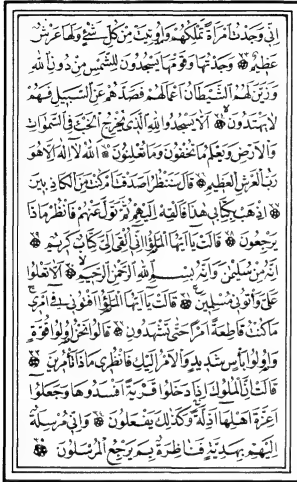 اِنّى وَجَدْتُ امْرَاَةً تَمْلِكُهُمْ وَاُوتِيَتْ مِنْ كُلِّ شَىْءٍ وَلَهَا عَرْشٌ
عَظيمٌ ۞ وَجَدْتُهَا وَقَوْمَهَا يَسْجُدُونَ لِلشَّمْسِ مِنْ دُونِ اللّٰهِ
وَزَيَّنَ لَهُمُ الشَّيْطَانُ اَعْمَالَهُمْ فَصَدَّهُمْ عَنِ السَّبيلِ فَهُمْ
لَا يَهْتَدُونَ ۞ اَلَّا يَسْجُدُوا لِلّٰهِ الَّذى يُخْرِجُ الْخَبْءَ فِى السَّمٰوَاتِ
وَالْاَرْضِ وَيَعْلَمُ مَا تُخْفُونَ وَمَا تُعْلِنُونَ ۞ اَللّٰهُ لَا اِلٰهَ اِلَّا هُوَ
رَبُّ الْعَرْشِ الْعَظيمِ ۞ قَالَ سَنَنْظُرُ اَصَدَقْتَ اَمْ كُنْتَ مِنَ الْكَاذِبينَ
۞ اِذْهَبْ بِكِتَابى هٰذَا فَاَلْقِهْ اِلَيْهِمْ ثُمَّ تَوَلَّ عَنْهُمْ فَانْظُرْ مَاذَا
يَرْجِعُونَ ۞ قَالَتْ يَا اَيُّهَا الْمَلَؤُا اِنّى اُلْقِىَ اِلَىَّ كِتَابٌ كَريمٌ ۞
اِنَّهُ مِنْ سُلَيْمٰنَ وَاِنَّهُ بِسْمِ اللّٰهِ الرَّحْمٰنِ الرَّحيمِ ۞ اَلَّا تَعْلُوا
عَلَىَّ وَاْتُونى مُسْلِمينَ ۞ قَالَتْ يَا اَيُّهَا الْمَلَؤُا اَفْتُونى فى اَمْرى
مَا كُنْتُ قَاطِعَةً اَمْرًا حَتّٰى تَشْهَدُونِ ۞ قَالُوا نَحْنُ اُولُوا قُوَّةٍ
وَاُولُوا بَاْسٍ شَديدٍ وَالْاَمْرُ اِلَيْكِ فَانْظُرى مَاذَا تَاْمُرينَ ۞
قَالَتْ اِنَّ الْمُلُوكَ اِذَا دَخَلُوا قَرْيَةً اَفْسَدُوهَا وَجَعَلُوا
اَعِزَّةَ اَهْلِهَا اَذِلَّةً وَكَذٰلِكَ يَفْعَلُونَ ۞ وَاِنّى مُرْسِلَةٌ
اِلَيْهِمْ بِهَدِيَّةٍ فَنَاظِرَةٌ بِمَ يَرْجِعُ الْمُرْسَلُونَ ۞